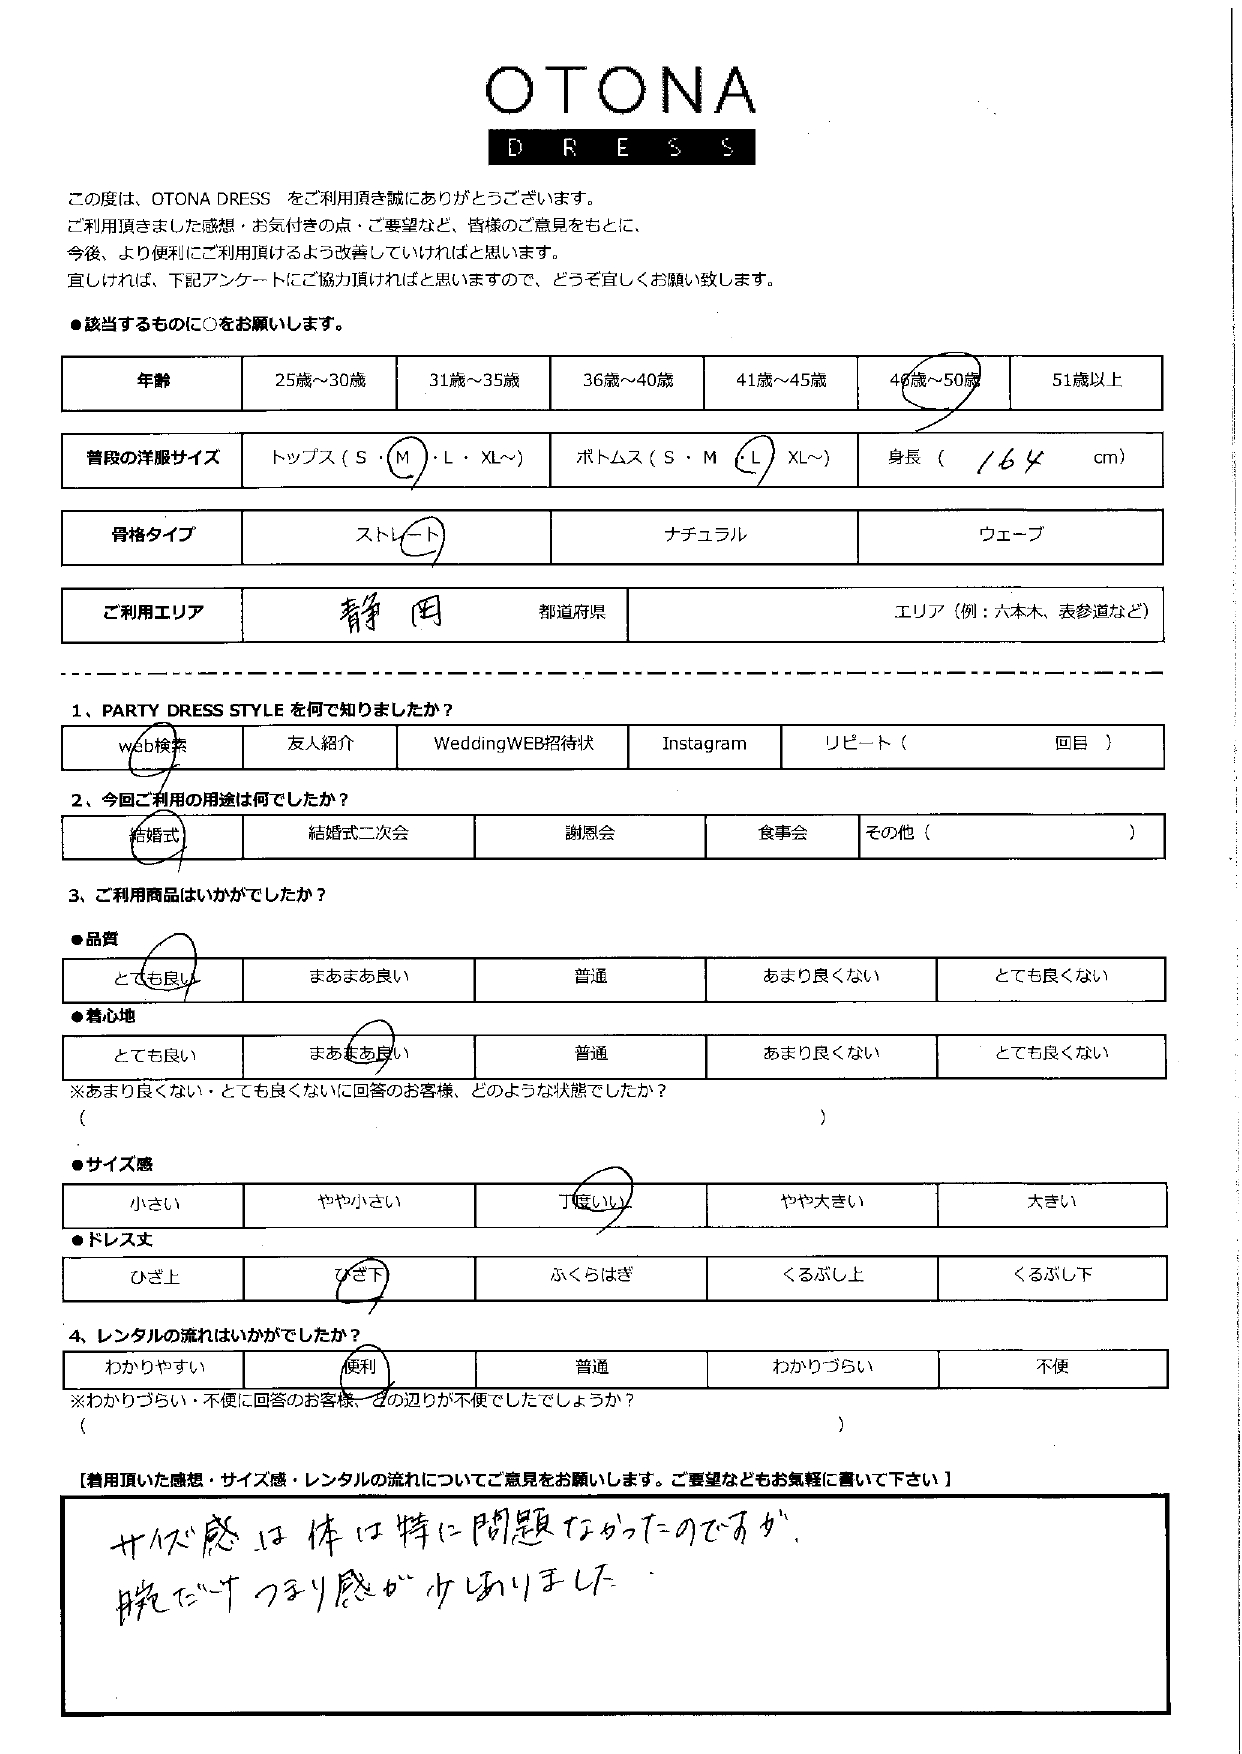 OTONA
DRESS
この度は、OTONA DRESS　をご利用頂き誠にありがとうございます。
ご利用頂きました感想・お気付きの点・ご要望など、皆様のご意見をもとに、
今後、より便利にご利用頂けるよう改善していければと思います。
宜しければ、下記アンケートにご協力頂ければと思いますので、どうぞ宜しくお願い致します。
●該当するものに○をお願いします。
年齢 25歳～30歳 31歳～35歳 36歳～40歳 41歳～45歳 46歳～50歳 51歳以上
普段の洋服サイズ トップス（ S ・ M ・ L ・ XL～) ボトムス（ S ・ M ・L XL～) 身長 （ 164 cm）
骨格タイプ ストレート ナチュラル ウェーブ
ご利用エリア 静岡 都道府県 エリア（例：六本木、表参道など）
1、PARTY DRESS STYLE を何で知りましたか？
web検索 友人紹介 WeddingWEB招待状 Instagram リピート（ 回目 ）
2、今回ご利用の用途は何でしたか？
結婚式 結婚式二次会 謝恩会 食事会 その他（ ）
3、ご利用商品はいかがでしたか？
●品質
とても良い まあまあ良い 普通 あまり良くない とても良くない
●着心地
とても良い まあまあ良い 普通 あまり良くない とても良くない
※あまり良くない・とても良くないに回答のお客様、どのような状態でしたか？
（ ）
●サイズ感
小さい やや小さい 丁度いい やや大きい 大きい
●ドレス丈
ひざ上 ひざ下 ふくらはぎ くるぶし上 くるぶし下
4、レンタルの流れはいかがでしたか？
わかりやすい 便利 普通 わかりづらい 不便
※わかりづらい・不便に回答のお客様、どの辺りが不便でしたでしょうか？
（ ）
【着用頂いた感想・サイズ感・レンタルの流れについてご意見をお願いします。ご要望などもお気軽に書いて下さい】
サイズ感は体は特に問題なかったのですが、
腕だけつまり感が少しありました